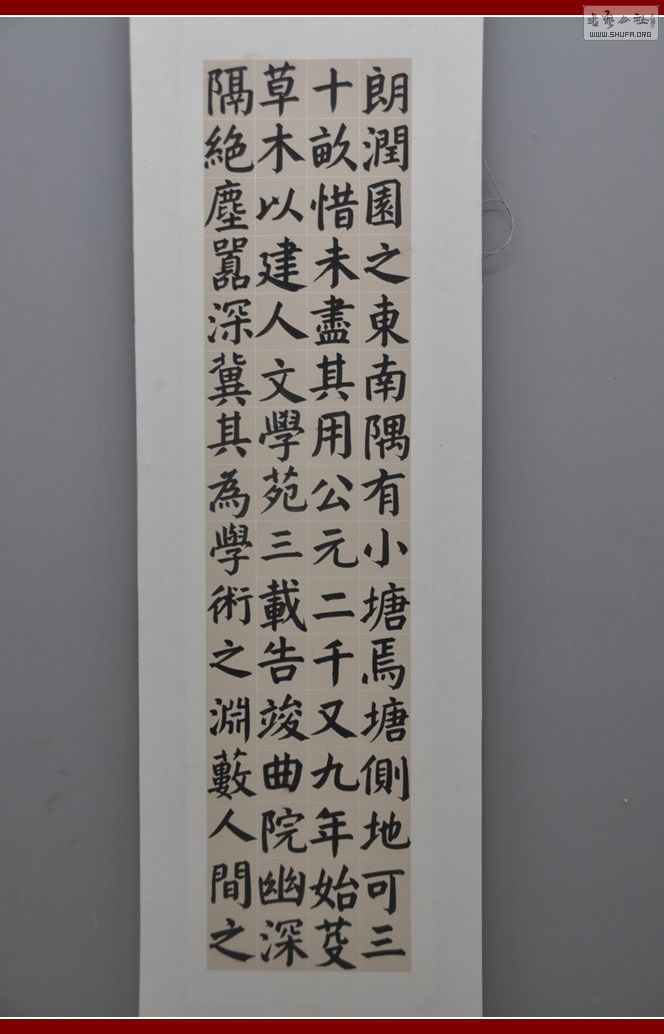 朗潤園之東南隅有小塘焉塘側地可三
十畝惜未盡其用公元二千又九年始芟
草木以建人文學苑三載告竣曲院幽深
隔絶塵囂深冀其為學術之淵藪人間之
書藝公社
WWW.SHUFA.ORG